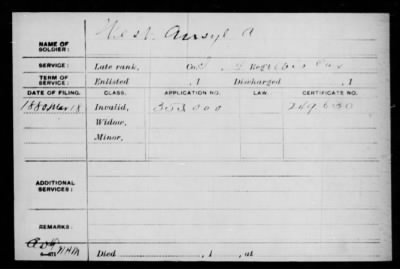 West Ansyl A
NAME OF
SOLDIER:
SERVICE: Late rank, Regt
TERM OF
SERVICE: Enlisted , 1 Discharged , 1
DATE OF FILING. CLASS. APPLICATION NO. LAW. CERTIFICATE NO.
1880 Mar 18 Invalid, 353,000 249,630
Widow,
Minor,
ADDITIONAL
SERVICES:
REMARKS:
Died , 1 , at